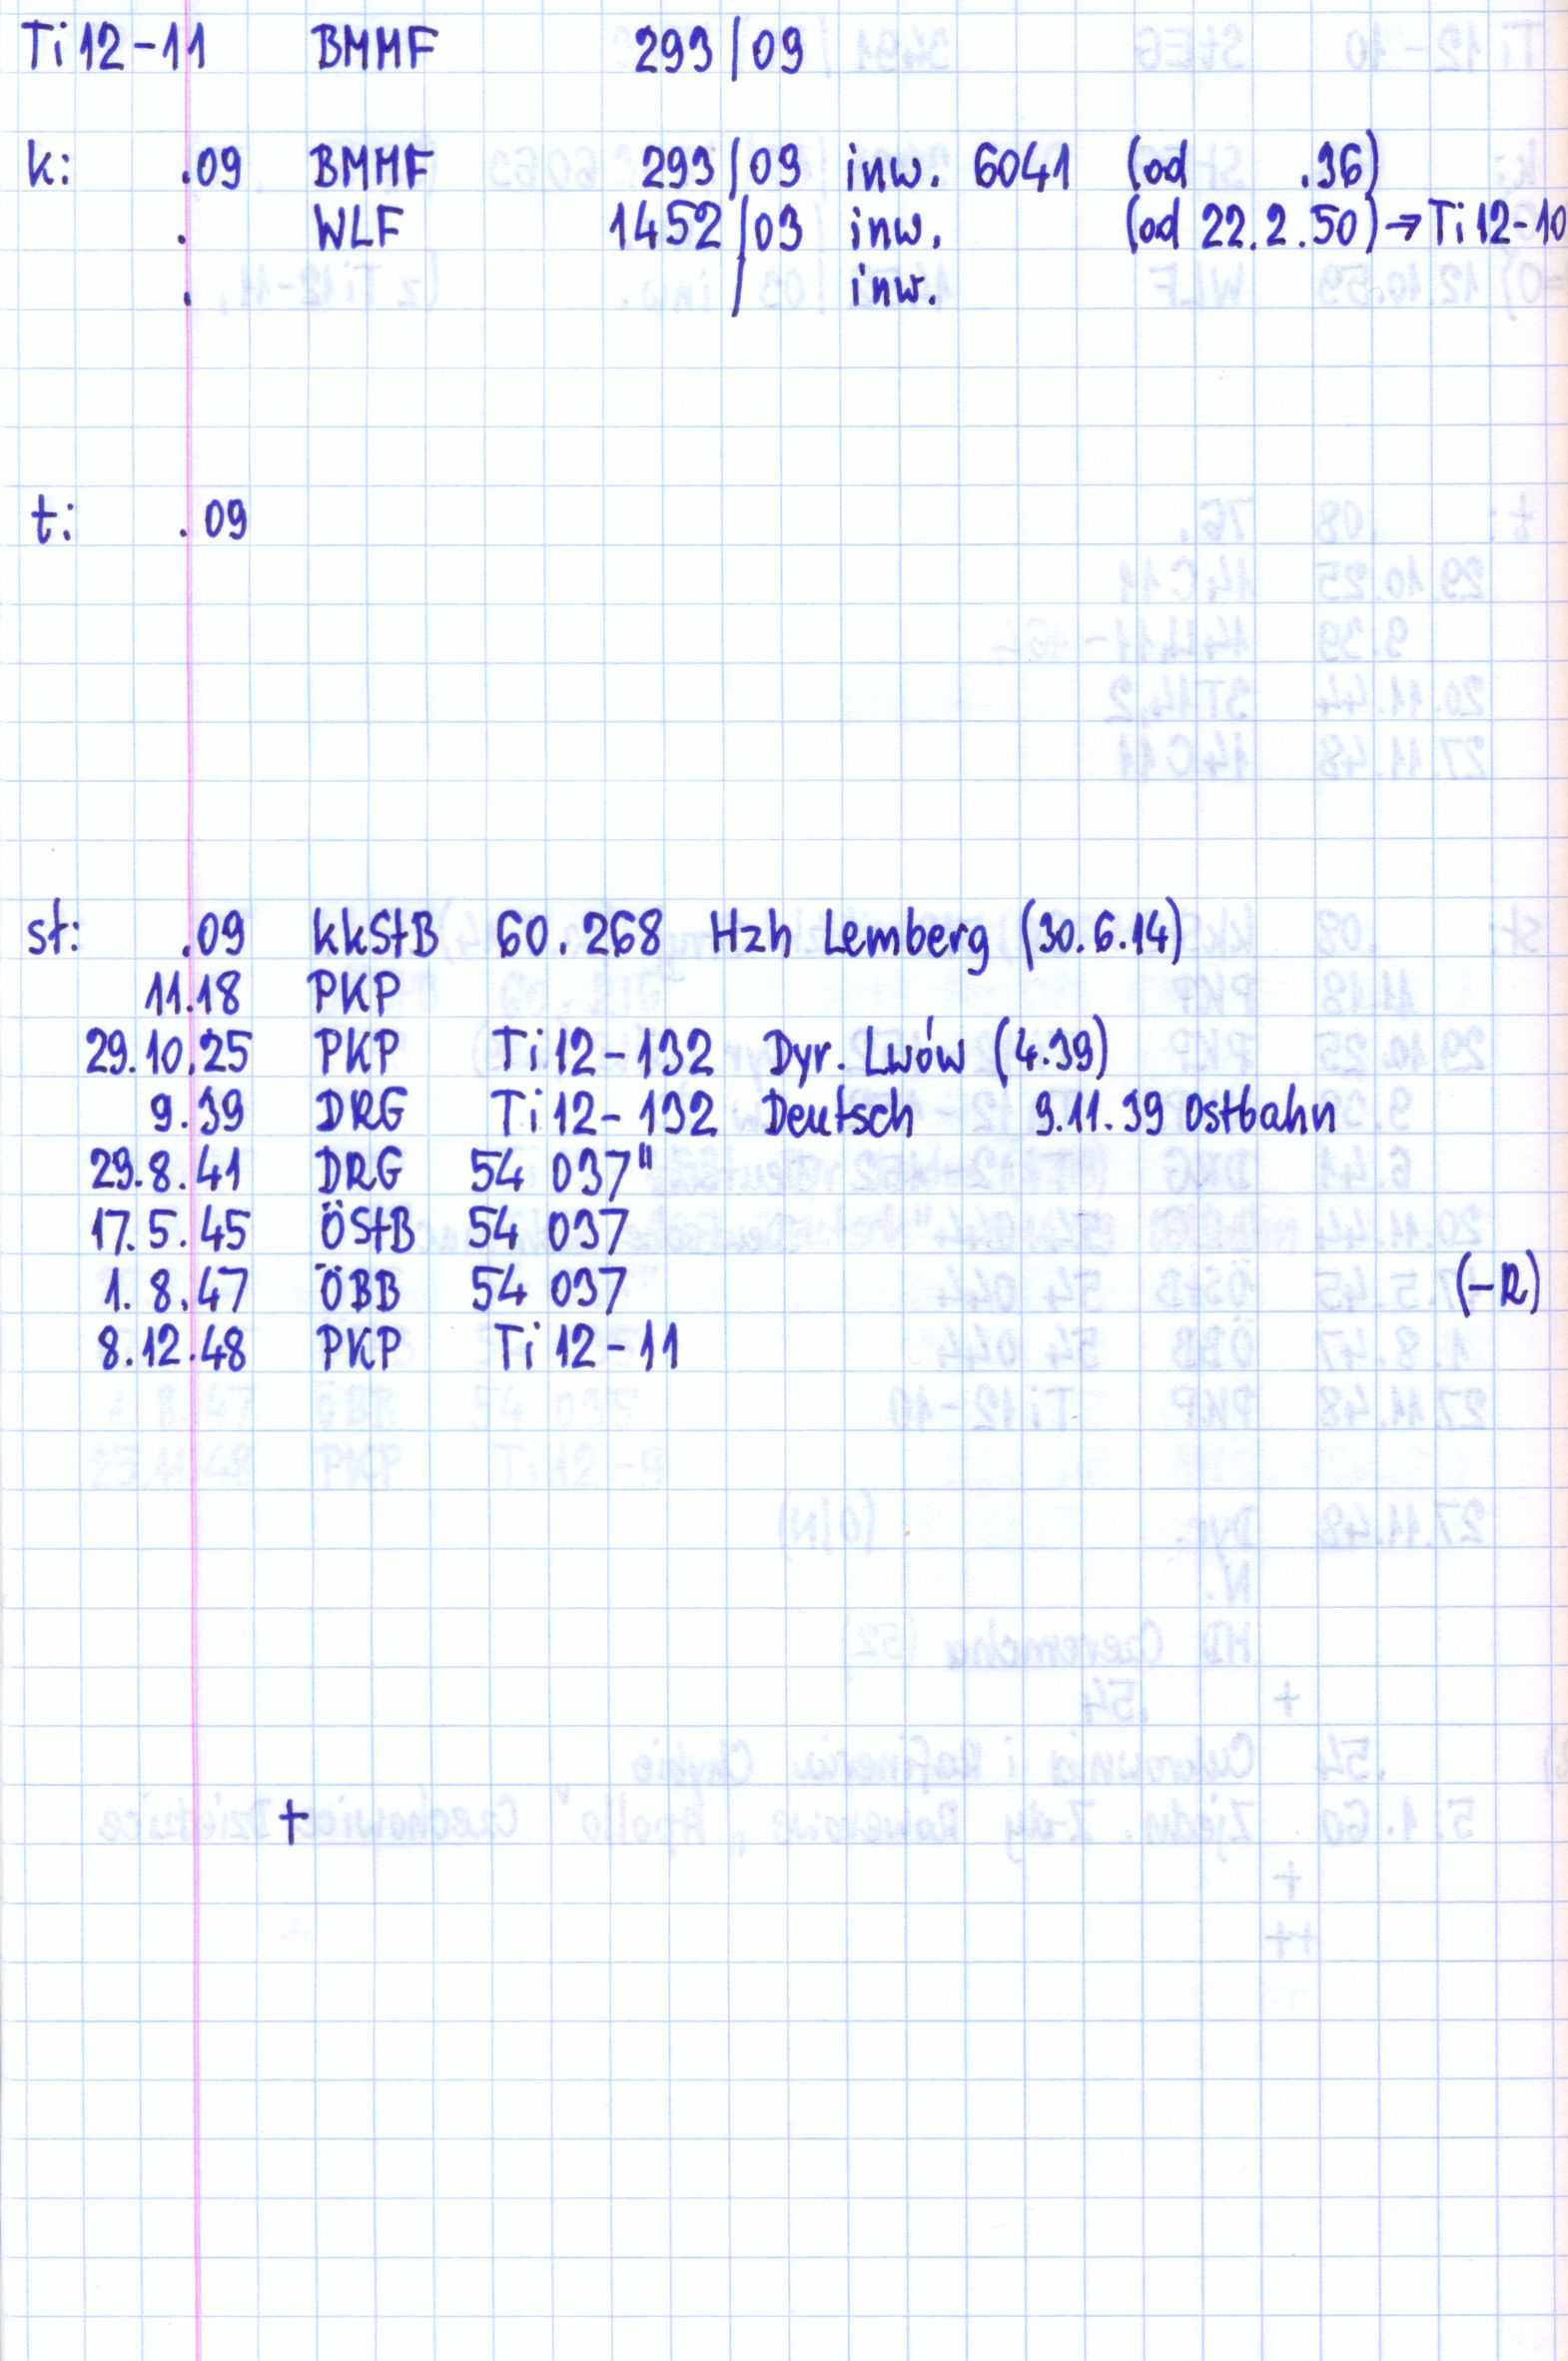 Ti12-11 BMMF 293/09
k: .09 BMMF 293/09 inw. 6041 (od .36)
. WLF 1452/03 inw. (od 22.2.50) → Ti12-10
. / inw.
t: .09
st: .09 kkStB 60.268 Hzh Lemberg (30.6.14)
11.18 PKP
29.10.25 PKP Ti12-132 Dyr. Lwów (4.39)
9.39 DRG Ti12-132 Deutsch 9.11.39 Ostbahn
29.8.41 DRG 54 037"
17.5.45 ÖStB 54 037
1.8.47 ÖBB 54 037 (-R)
8.12.48 PKP Ti12-11
+